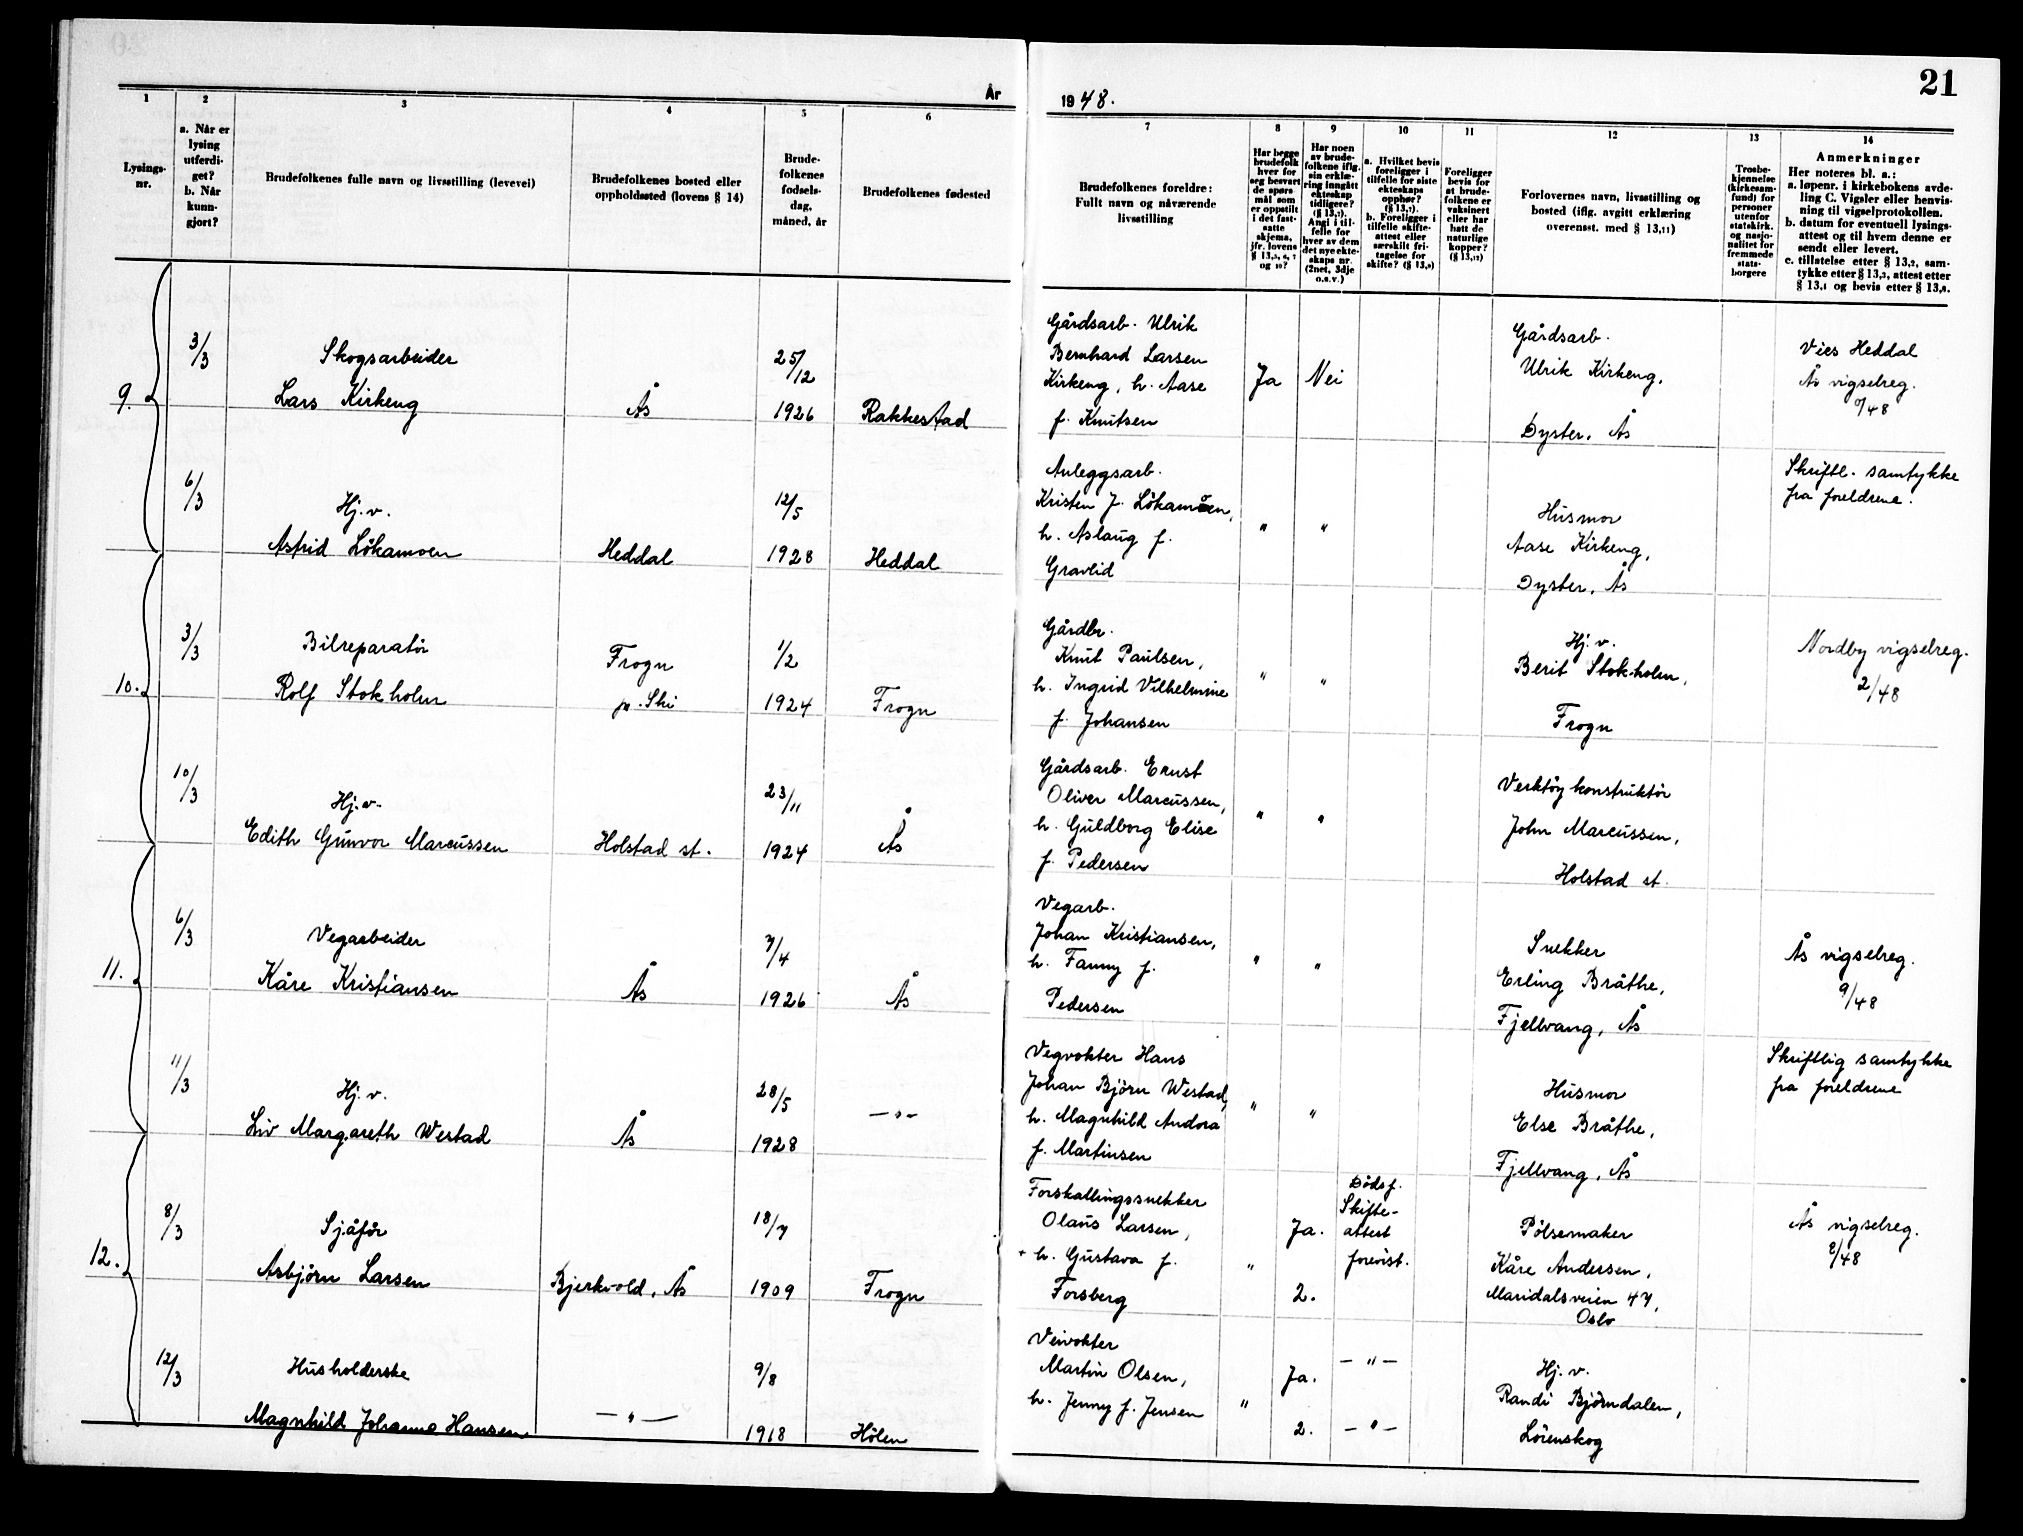 21
År
1948.
1
2
3
4
5
6
7
8
9
10
11
12
13
14
Lysings-
nr.
a. Når er
lysing
utferdi-
get?
b. Når
kunn-
gjort?
Brudefolkenes fulle navn og livsstilling (levevei)
Brudefolkenes bosted eller
oppholdssted (lovens § 14)
Brude-
folkenes
fødsels-
dag,
måned, år
Brudefolkenes fødested
Brudefolkenes foreldre:
Fullt navn og nåværende
livsstilling
Har begge
brudefolk
hver for
seg besvart
de spørs
mål som
er oppstilt
i det fast-
satte
skjema,
jfr. lovens
§ 13,5, 6, 7
og 10?
Har noen
av brude-
folkene iflg.
sin erklæ-
ring inngått
ekteskap
tidligere?
(§ 13,7).
Angi i til-
felle for
hver av dem
det nye ekte-
skaps nr.
(2net, 3dje
o.s.v.)
a. Hvilket bevis
foreligger i
tilfelle for siste
ekteskaps
opphør?
(§ 13,7)
b. Foreligger i
tilfelle skifte-
attest eller
særskilt fri-
tagelse for
skifte? (§ 13,8)
Foreligger
bevis for
at brude-
folkene er
vaksinert
eller har
hatt de
naturlige
kopper?
(§ 13,12)
Forlovernes navn, livsstilling og
bosted (iflg. avgitt erklæring
overensst. med § 13,11)
Trosbe-
kjennelse
(kirkesam-
fund) for
personer
utenfor
statskirk.
og nasjo-
nalitet for
fremmede
stats-
borgere
Anmerkninger
Her noteres bl. a.:
a. løpenr. i kirkebokens avde-
ling C. Vigsler eller henvis-
ning til vigselprotokollen.
b. datum for eventuell lysings-
attest og til hvem denne er
sendt eller levert.
c. tillatelse etter § 13,2, sam-
tykke etter § 13,3, attest etter
§ 13,4 og bevis etter § 13,8.
9.
3/3
Skogsarbeider
Lars Kirkeng
Ås
25/12
1926
Rakkestad
Gårdsarb. Ulrik
Bernhard Larsen
Kirkeng, h. Aase
f. Knutsen
Ja
Nei
Gårdsarb.
Ulrik Kirkeng,
Dyster, Ås
Vies Heddal
Ås vigselreg.
/48
6/3
Hj.v.
Astrid Lökamoen
Heddal
12/5
1928
Heddal
Anleggsarb.
Kristen J. Lökamoen,
h. Aslaug f.
Gravlid
"
"
Husmor
Aase Kirkeng,
Dyster, Ås
Skriftl. samtykke
fra foreldrene.
10.
3/3
Bilreparatör
Rolf Stokholm
Frogn
p. Ski
1/2
1924
Frogn
Gårdbr.
Knut Paulsen,
h. Ingrid Vilhelmine
f. Johansen
"
"
Hj.v.
Berit Stokholm,
Frogn
Nordby vigselreg.
2/48
10/3
Hj.v.
Edith Gunvor Marcussen
Holstad st.
23/11
1924
Ås
Gårdsarb. Ernst
Oliver Marcussen,
h. Guldborg Elise
f. Pedersen
"
"
Verktöykonstruktör
John Marcussen,
Holstad st.
11.
6/3
Vegarbeider
Kåre Kristiansen
Ås
7/4
1926
Ås
Vegarb.
Johan Kristiansen,
h. Fanny f.
Pedersen
"
"
Snekker
Erling Bråthe,
Fjellvang, Ås
Ås vigselreg.
9/48
11/3
Hj.v.
Liv Margareth Westad
Ås
28/5
1928
— " —
Vegvokter Hans
Johan Björn Westad,
h. Magnhild Andora
f. Martinsen
"
"
Husmor
Else Bråthe,
Fjellvang, Ås
Skriftlig samtykke
fra foreldrene
12.
8/3
Sjåför
Asbjörn Larsen
Bjerkvold, Ås
18/7
1909
Frogn
Forskallingssnekker
Olaus Larsen,
+ h. Gustava f.
Forsberg
"
Ja.
2.
Dödsf.
Skifte-
attest
forevist.
Pölsemaker
Kåre Andersen,
Maridalsveien 47,
Oslo
Ås vigselreg.
8/48
12/3
Husholderske
Magnhild Johanna Hansen
— " —
9/8
1918
Hölen
Veivokter
Martin Olsen,
h. Jenny f. Jensen
"
Ja.
2.
— " —
— " —
Hj.v.
Randi Björndalen,
Lörenskog